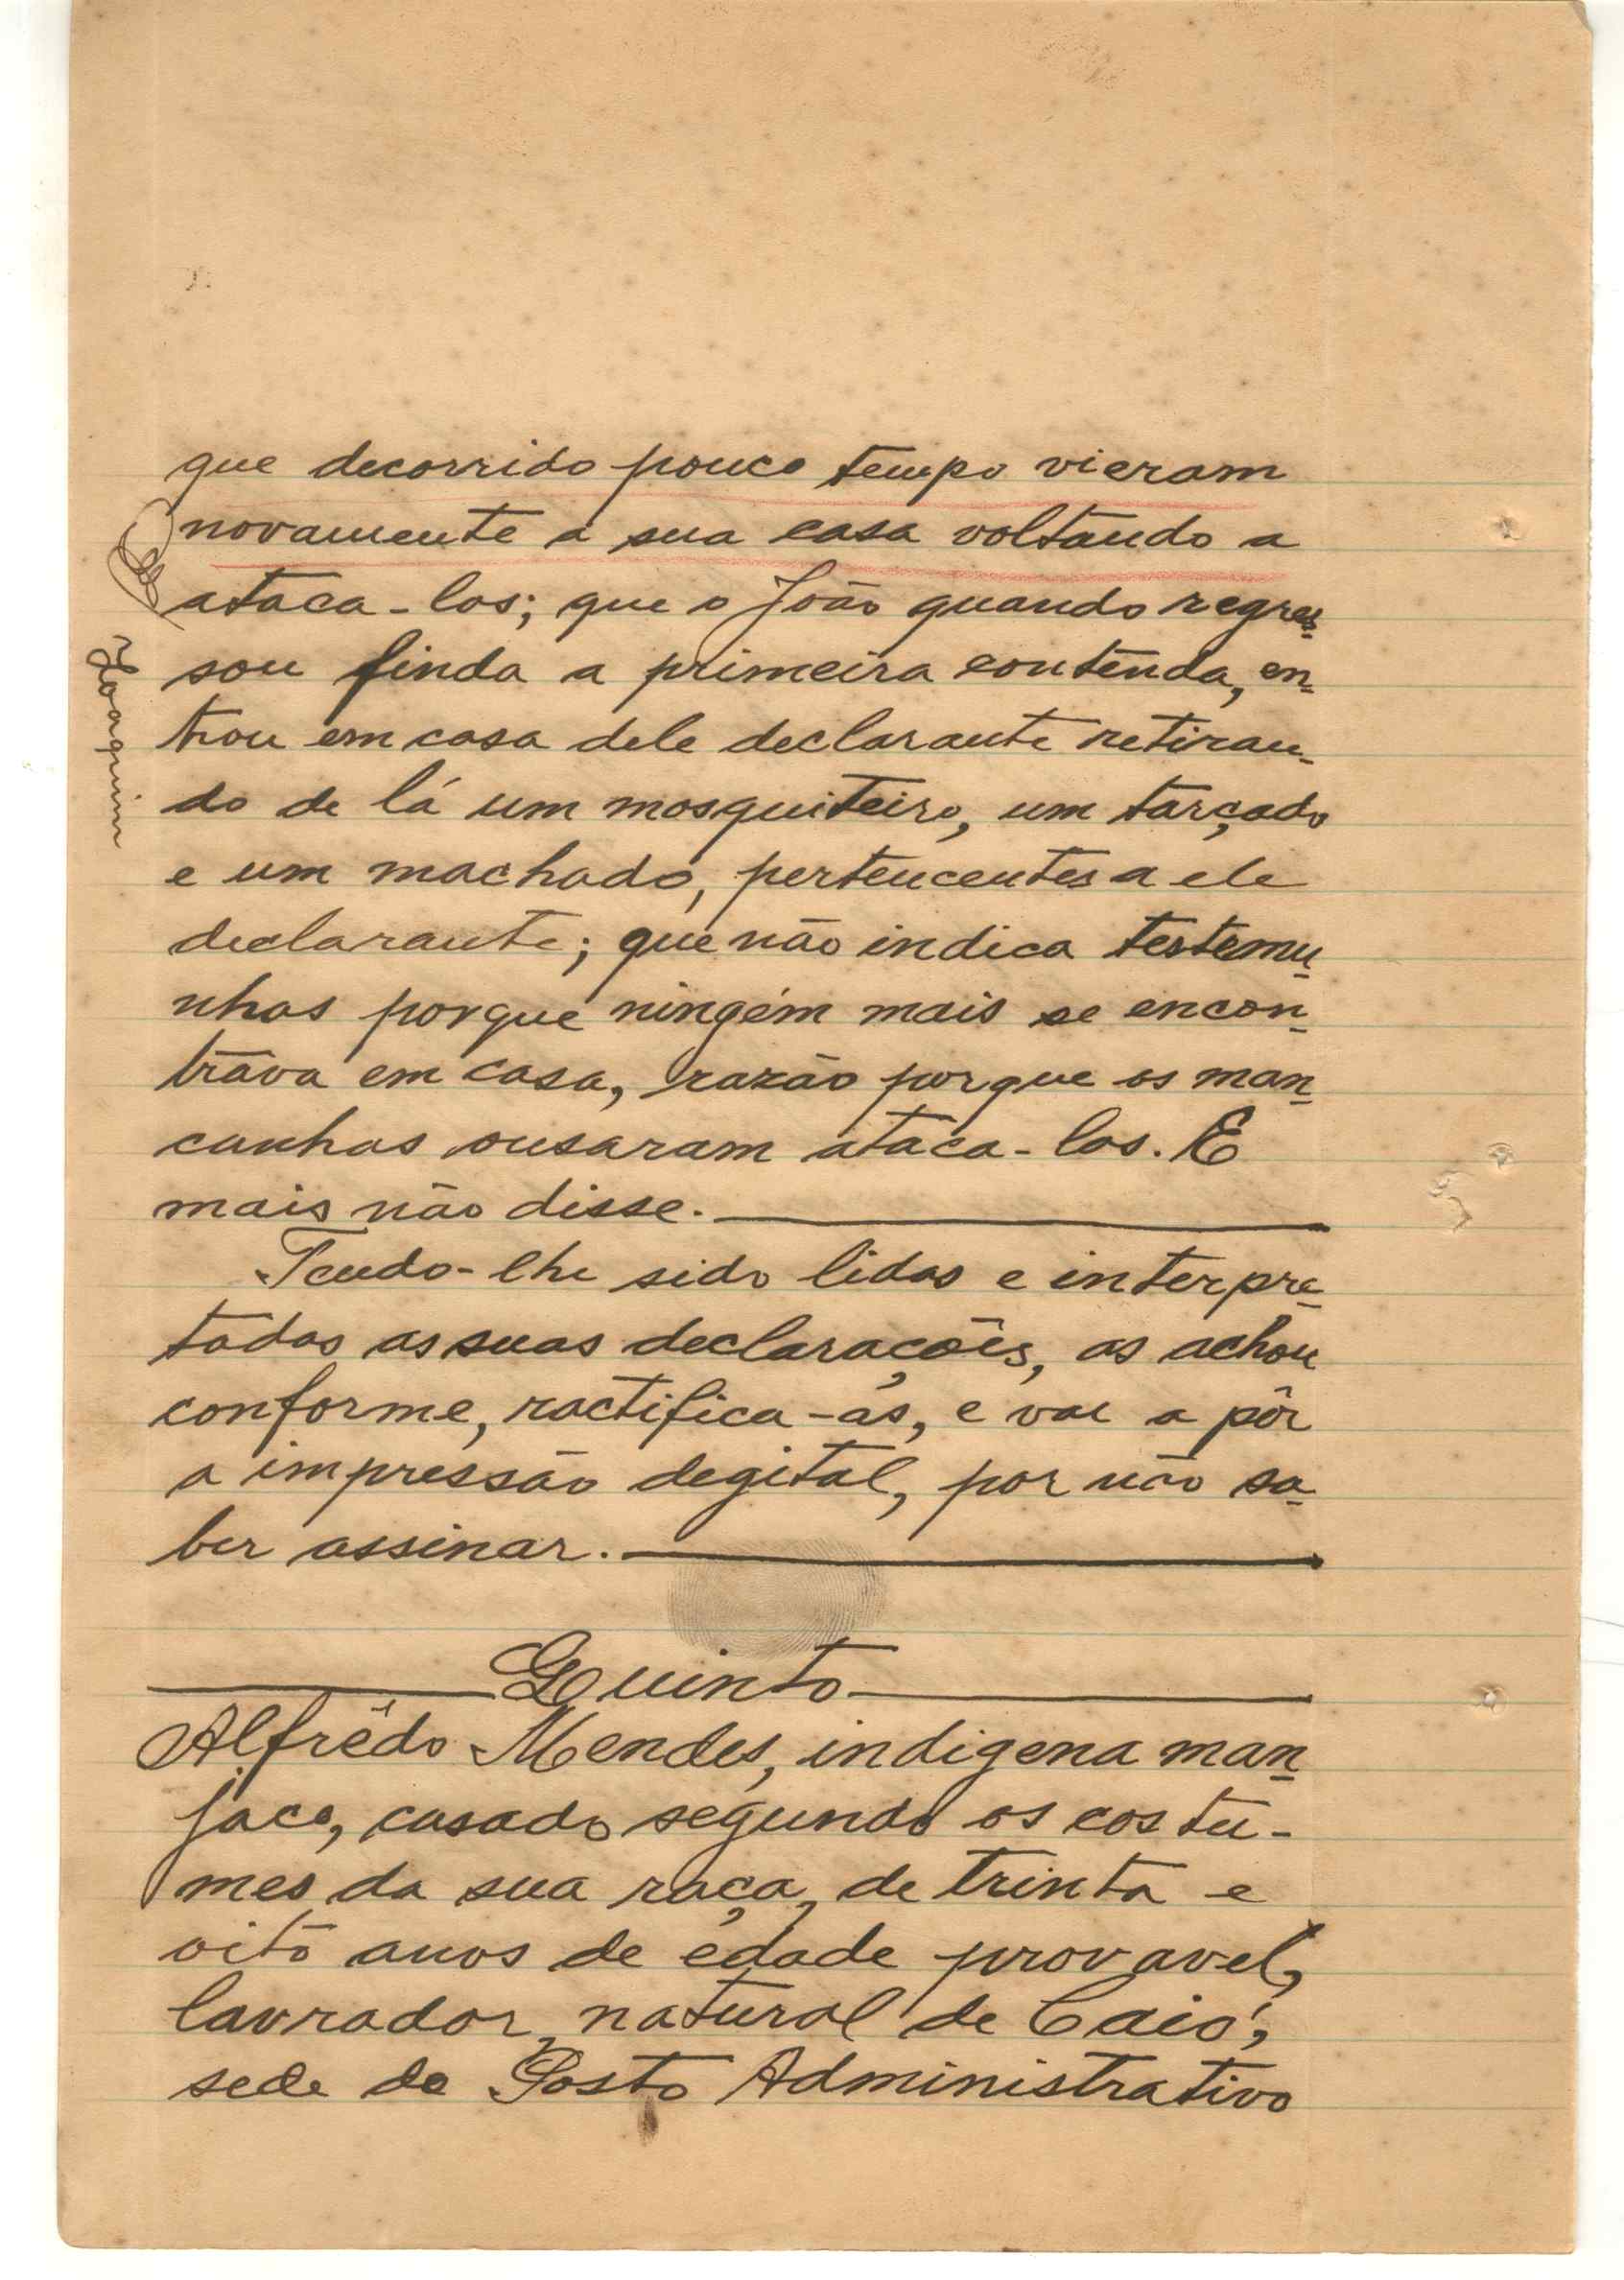 que decorrido pouco tempo vieram
novamente a sua casa voltando a
ataca-los; que o João quando regres-
sou finda a primeira contenda, en-
trou em casa dele declarante retiran-
do de lá um mosquiteiro, um tarçado
e um machado, pertencentes a ele
declarante; que não indica testemu-
nhas porque ningém mais se encon-
trava em casa, razão porque os man-
canhas ousaram ataca-los. E
mais não disse.
Tendo-lhe sido lidas e interpre-
tadas as suas declarações, as achou
conforme, ractifica-as, e vae a pôr
a impressão degital, por não sa-
ber assinar.
Quinto
Alfrêdo Mendes, indigena man-
jaco, casado segundo os costu-
mes da sua raça, de trinta e
oito anos de edade provavel,
lavrador, natural de Caió,
sede do Posto Administrativo
Joaquim